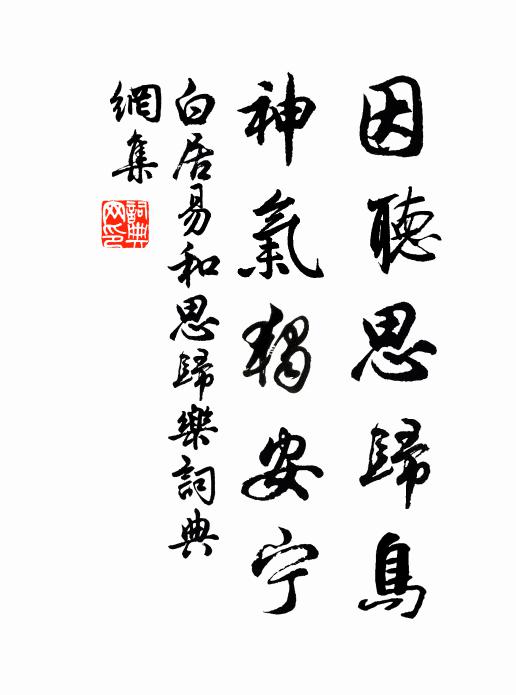 因聽思歸鳥
神氣獨安宁
白居易和思歸樂詞典
網集
詞典網印